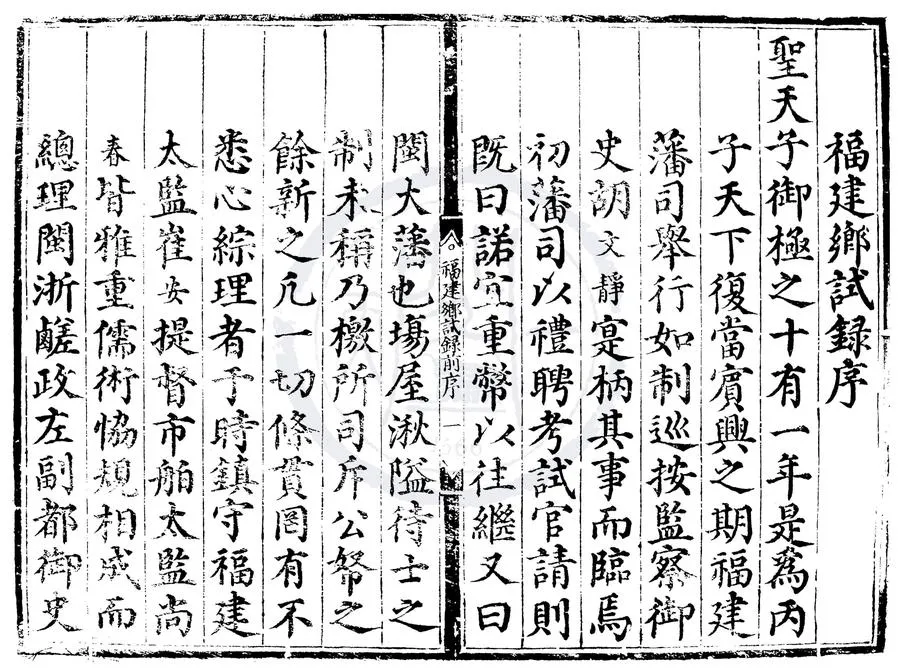 福建鄉試録序
聖天子御極之十有一年是爲丙
子天下復當賓興之期福建
藩司舉行如制巡按監察御
史胡文靜寔柄其事而臨焉
初藩司以禮聘考試官請則
既曰諾宜重幣以往繼又曰
福建鄉試録前序 一
閩大藩也塲屋湫隘待士之
制未稱乃檄所司斥公帑之
餘新之凡一切條貫罔有不
悉心綜理者于時鎮守福建
太監崔安提督市舶太監尚
春皆雅重儒術恊規相成而
總理閩浙鹺政左副都御史